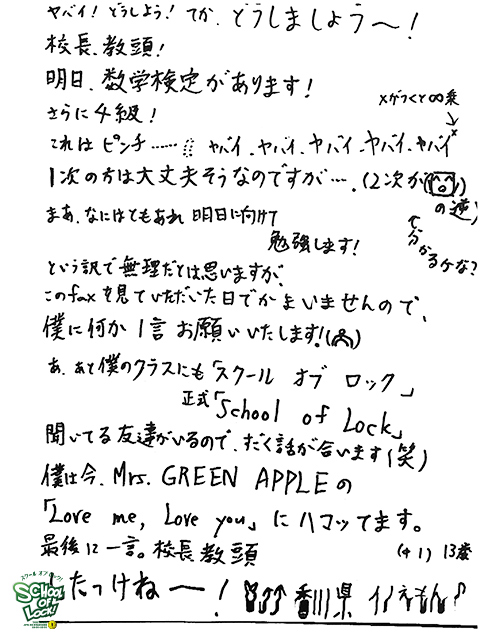 ヤバイ！どうしよう！てか、どうしましょう〜！
校長、教頭！
明日、数学検定があります！
さらに4級！
xがつくと∞乗
↓
これはピンチ……ヤバイ、ヤバイ、ヤバイ、ヤバイ、ヤバイx
1次の方は大丈夫そうなのですが…。(2次が
の逆)
で分かるケな？
まあ、なにはともあれ明日に向けて
勉強します！
という訳で無理だとは思いますが、
このfaxを見ていただいた日でかまいませんので、
僕に何か1言お願いいたします！
あ、あと僕のクラスにも「スクール オブ ロック」
正式「School of Lock」
聞いてる友達がいるので、だく話が合います(笑)
僕は今、Mrs. GREEN APPLEの
「Love me, Love you」にハマッてます。
最後に一言。校長教頭
(中1) 13歳
たっけね〜！
香川県
スクールオブロック!
SCHOOL OF LOCK!